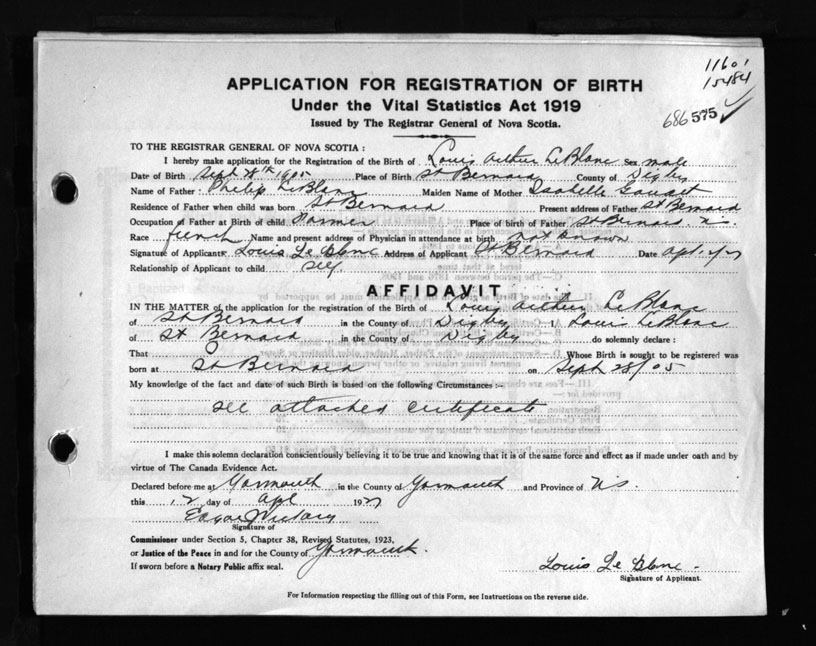 11601
15484
686575
APPLICATION FOR REGISTRATION OF BIRTH
Under the Vital Statistics Act 1919
Issued by The Registrar General of Nova Scotia.
TO THE REGISTRAR GENERAL OF NOVA SCOTIA:
I hereby make application for the Registration of the Birth of Louis Arthur LeBlanc Sex male
Date of Birth Sept 28th 1905 Place of Birth St Bernard County of Digby
Name of Father Philip LeBlanc Maiden Name of Mother Isabelle
Residence of Father when child was born St Bernard Present address of Father St Bernard
Occupation of Father at Birth of child Farmer Place of birth of Father St Bernard N.S.
Race french Name and present address of Physician in attendance at birth not known
Signature of Applicant Louis Le Blanc Address of Applicant St Bernard Date Apl.
Relationship of Applicant to child self
AFFIDAVIT
IN THE MATTER of the application for the registration of the Birth of Louis Arthur LeBlanc
of St Bernard in the County of Digby I Louis LeBlanc
of St Bernard in the County of Digby do solemnly declare:
That Whose Birth is sought to be registered was
born at St Bernard on Sept 28/05
My knowledge of the fact and date of such Birth is based on the following Circumstances:-
see attached certificate
I make this solemn declaration conscientiously believing it to be true and knowing that it is of the same force and effect as if made under oath and by
virtue of The Canada Evidence Act.
Declared before me at Yarmouth in the County of Yarmouth and Province of N.S.
this 12 day of Apl 1927
Signature of
Commissioner under Section 5, Chapter 38, Revised Statutes, 1923,
or Justice of the Peace in and for the County of Yarmouth.
If sworn before a Notary Public affix seal.
Louis Le Blanc
Signature of Applicant.
For Information respecting the filling out of this Form, see Instructions on the reverse side.